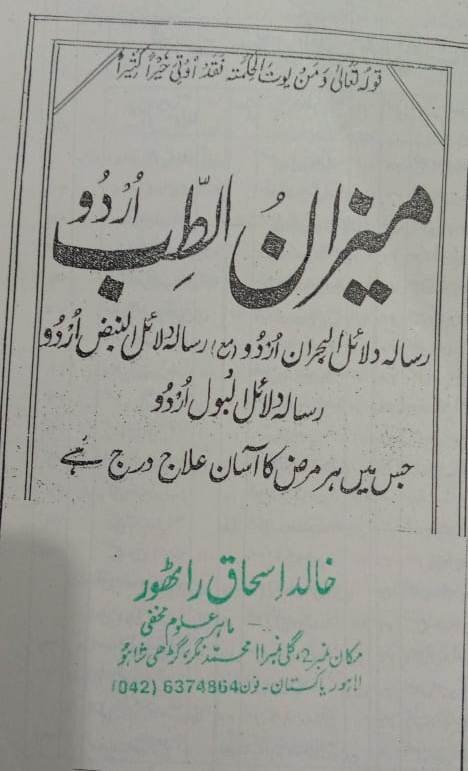 قولہ تعالیٰ وَمَن یوت الحکمتہ فقد اُوتی خیراً کثیراً
میزانُ الطِّب اُردُو
رسالہ دلائل البحران اُردُو (مع) رسالہ دلائل النبض اُردُو
رسالہ دلائل البول اُردُو
جس میں ہر مرض کا آسان علاج درج ہے
خالد اسحاق راٹھور
ماہر علوم مخفی
مکان نمبر 2، گلی نمبر 11 محمد نگر، گڑھی شاہو
لاہور پاکستان - فون 6374864 (042)